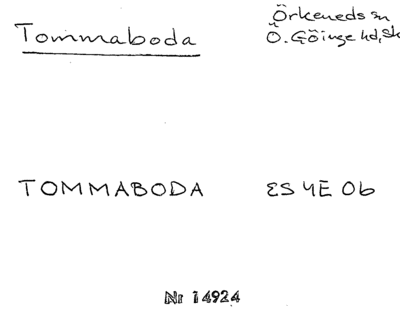 Tommaboda
Örkeneds sn
Ö. Göinge hd, Sk
TOMMABODA ES 4E 0b
Nr 14924